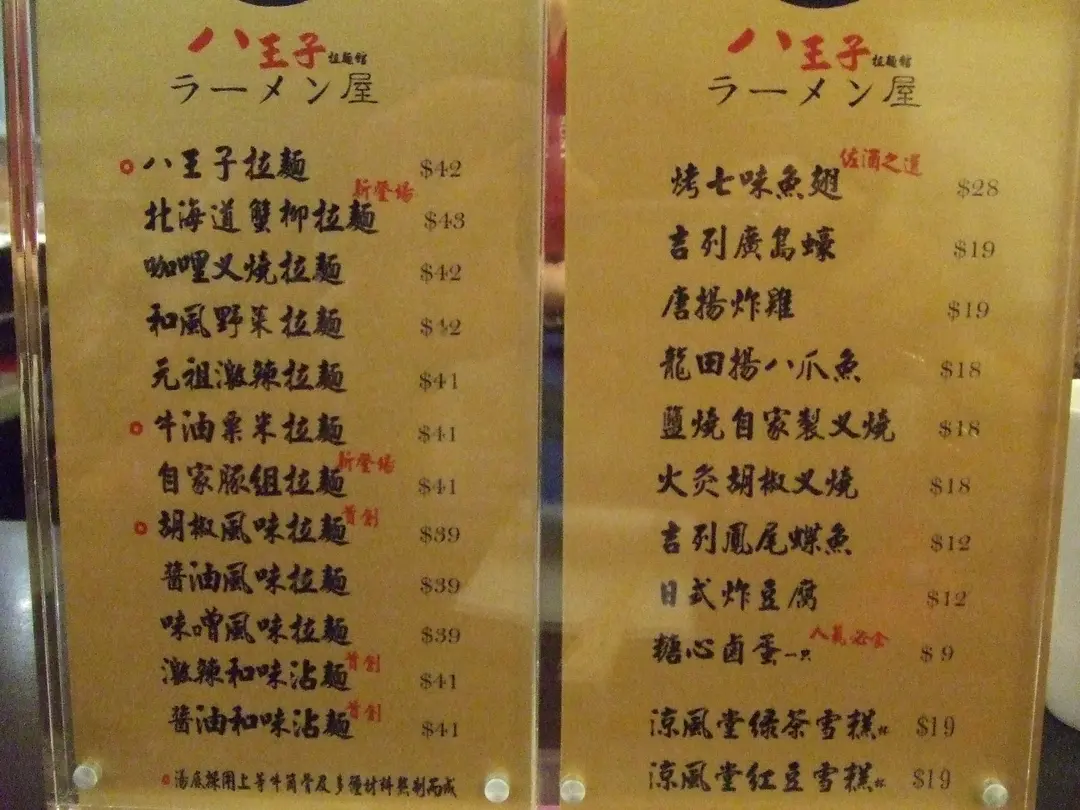 八王子拉麵館
ラーメン屋
八王子拉麵 $42
北海道蟹柳拉麵 新登場 $43
咖喱叉燒拉麵 $42
和風野菜拉麵 $42
元祖激辣拉麵 $41
牛油粟米拉麵 $41
自家豚組拉麵 新登場 $41
胡椒風味拉麵 首創 $39
醬油風味拉麵 $39
味噌風味拉麵 $39
激辣和味沾麵 首創 $41
醬油和味沾麵 首創 $41
湯底採用上等牛筒骨及多種材料熬制而成
八王子拉麵館
ラーメン屋
烤七味魚翅 佐酒之選 $28
吉列廣島蠔 $19
唐揚炸雞 $19
龍田揚八爪魚 $18
鹽燒自家製叉燒 $18
火炙胡椒叉燒 $18
吉列鳳尾蝶魚 $12
日式炸豆腐 $12
糖心卤蛋一只 人氣必食 $9
涼風堂绿茶雪糕杯 $19
涼風堂紅豆雪糕杯 $19